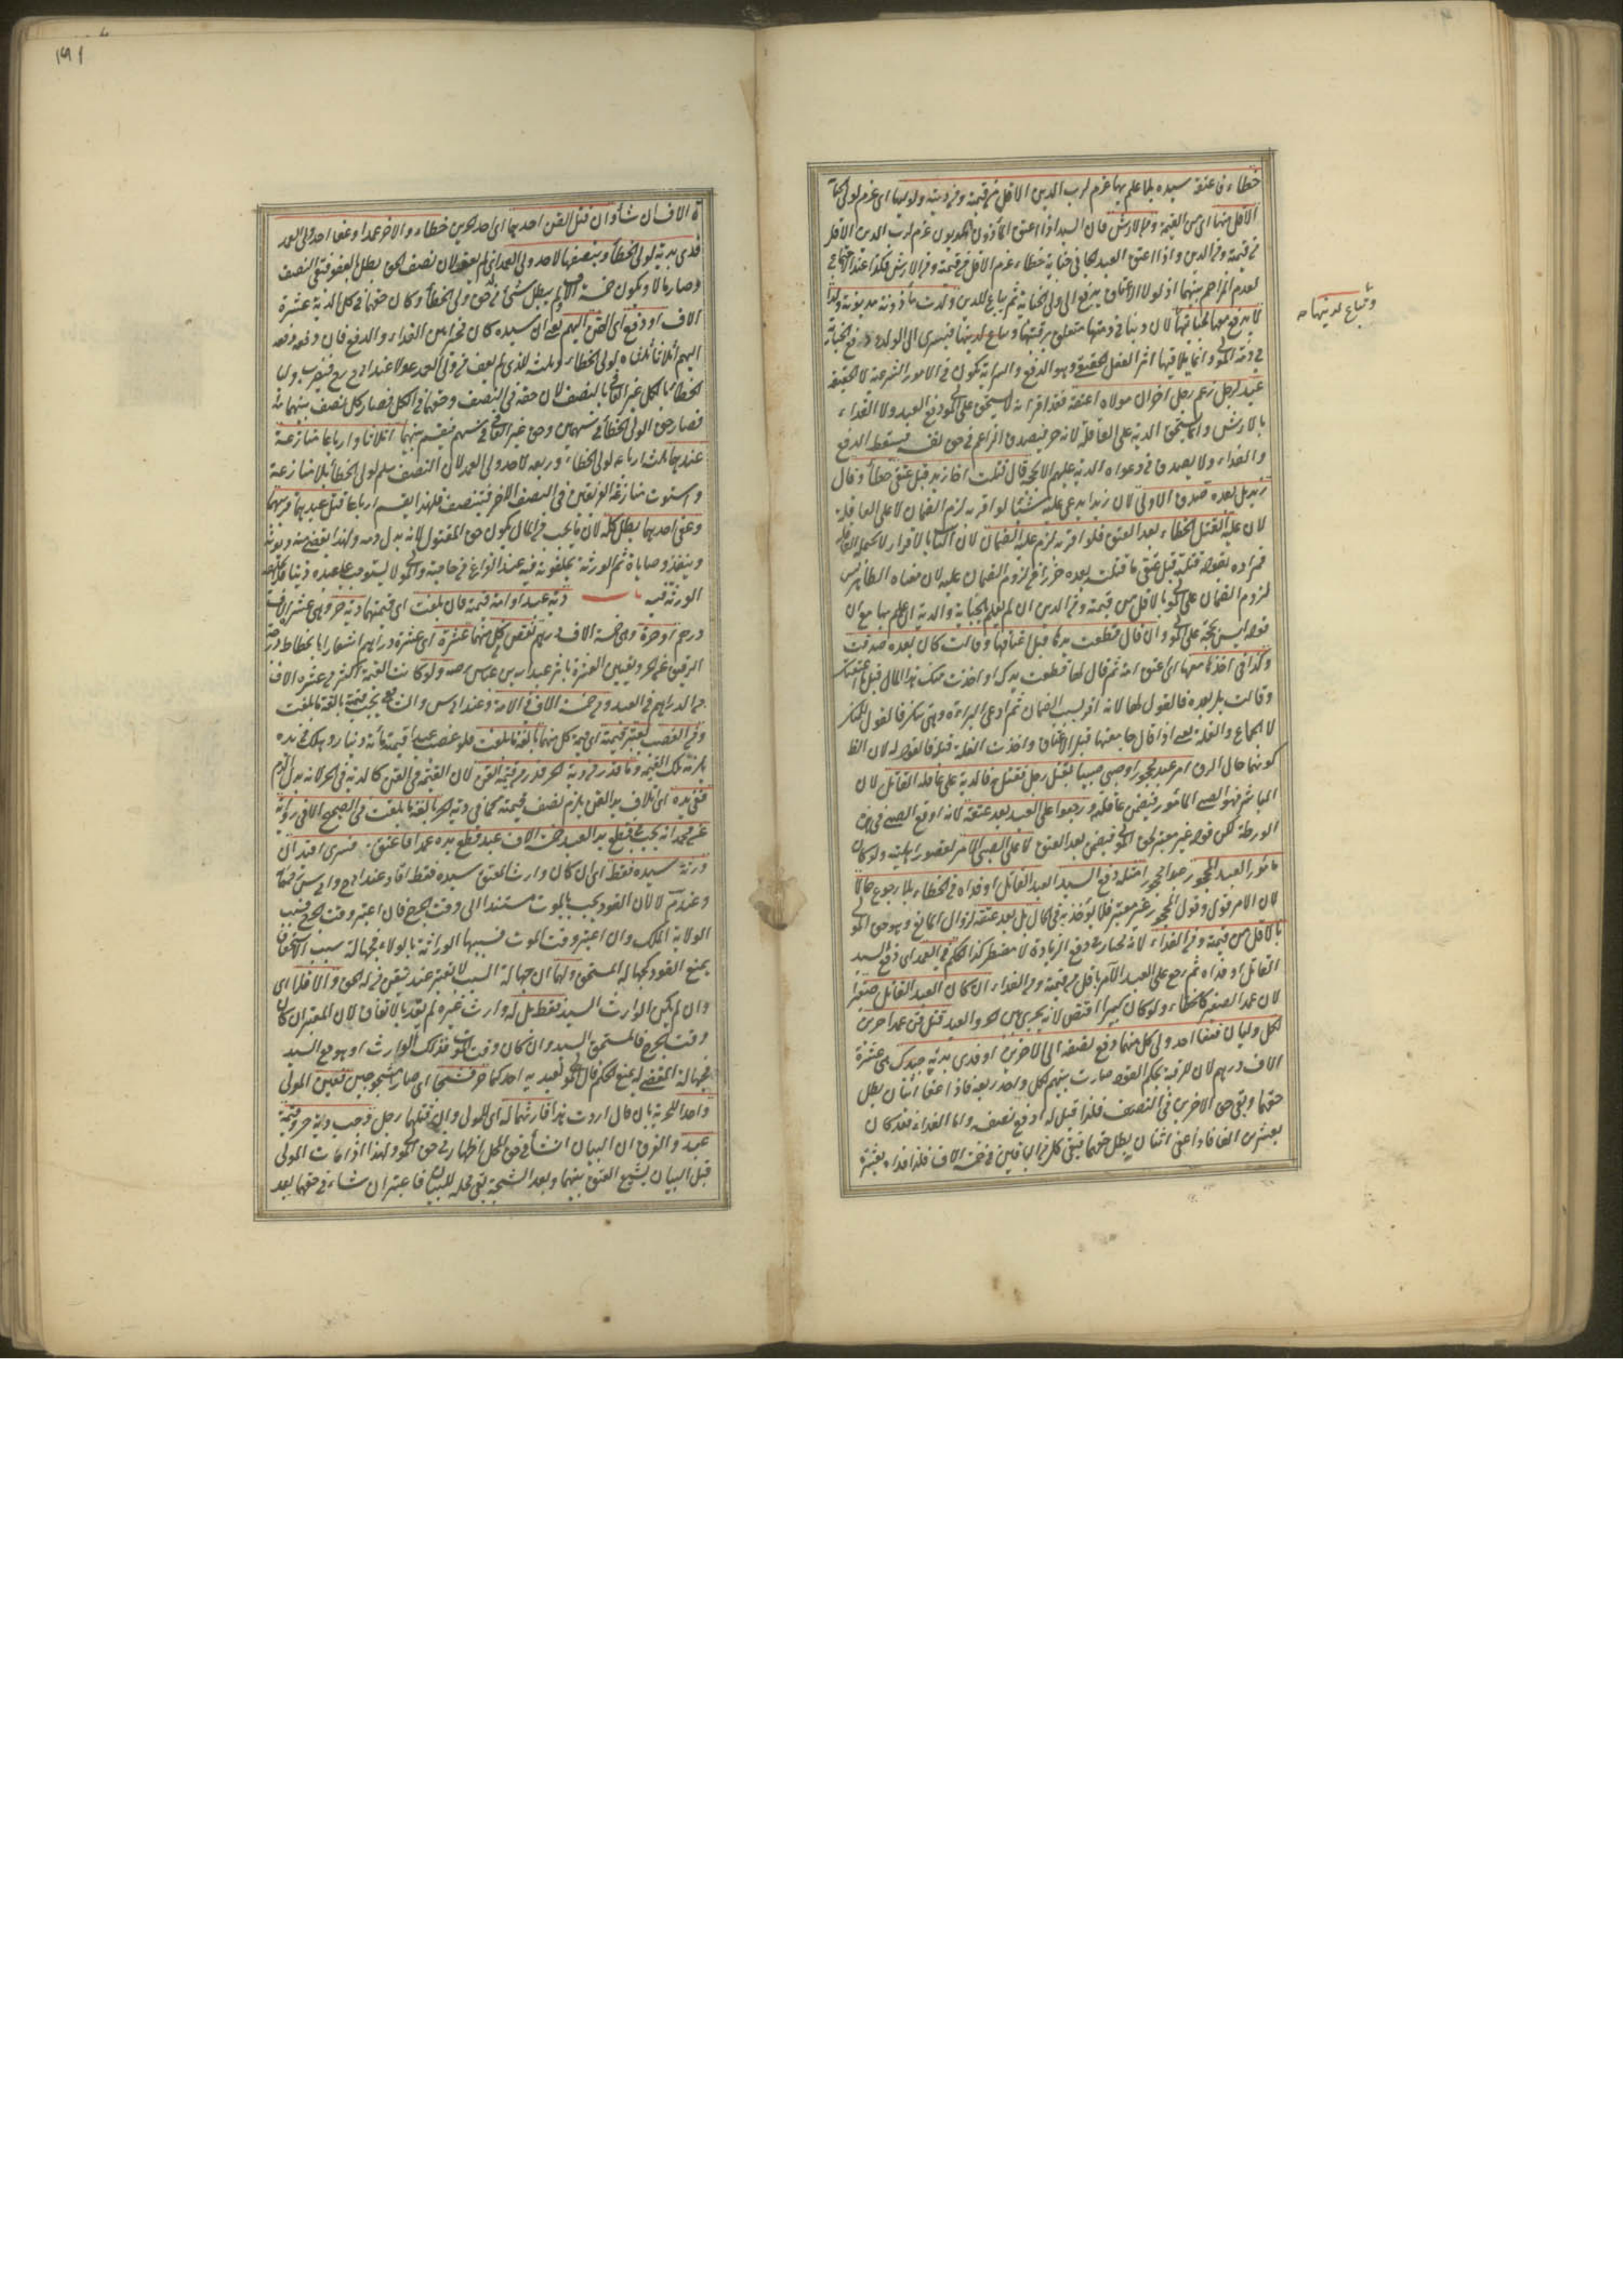 خطاء فاعتقه سيده بلا علم بها غرم لرب الدين الاقل من قيمته ومن دينه ولوليها اى غرم لولى الجناية
الاقل منها اى من القيمة ومن الارش فان السيد اذا اعتق المأذون المديون غرم لرب الدين الاقل
من قيمته ومن الدين واذا اعتق العبد الجانى جناية خطاء غرم الاقل من قيمته ومن الارش فكذا عند الاجتماع
لعدم المزاحم بينهما اذ لولا الاعتاق يدفع الى ولى الجناية ثم يباع للدين ولدت مأذونة مديونة ولدا
لا يدفع معها لجنايتها لان دينا فى ذمتها متعلق برقبتها وتباع لدينها فيسرى الى الولد ودفع الجناية
وتباع لدينها صح
فى ذمة المولى وانما يلاقيها اثر الفعل الحقيقى وهو الدفع والسراية تكون فى الامور الشرعية لا الحقيقة
عبد لرجل زعم رجل اخر ان مولاه اعتقه فقد اقر انه لا يستحق على المولى دفع العبد ولا الفداء
بالارش وانما يستحق الدية على العاقلة لانه حر فيصدق الزاعم فى حق نفسه فيسقط الدفع
والفداء ولا يصدق فى دعواه الدية عليهم الا بحجة قال قتلت اخا زيد قبل عتقى خطأ وقال
زيد بل بعده صدق الاول لان زيدا يدعى عليه شيئا لو اقر به لزم الضمان لا على العاقلة
لان عليه القتل الخطاء بعد العتق فلو اقر به لزم عليه الضمان لان الثابت بالاقرار لا تحمله العاقلة
فمراده بقوله قتلته قبل عتقى ما قتلت بعده حذرا عن لزوم الضمان عليه لان معناه الظاهر ليس
لزوم الضمان على المولى بالاقل من قيمته ومن الدين ان لم يعلم بالجناية والدية ان علم بها مع ان
قوله ليس بحجة على المولى وان قال قطعت يدها قبل اعتاقها وقالت كان بعده صدقت
وكذا فى اخذه منها اى اعتق امة ثم قال لها قطعت يدك او اخذت منك هذا المال قبل ما اعتقتك
وقالت بل بعده فالقول لها لانه اقر بسبب الضمان ثم ادعى البراءة وهى تنكر فالقول للمنكر
لا الجماع والغلة يعنى اذا قال جامعتها قبل الاعتاق واخذت الغلة قبله فالقول له لان الظ
كونهما حال الرق امر عبد محجور او صبى صبيا بقتل رجل فقتله فالدية على عاقلة القاتل لان
المباشر هو الصبى المأمور فيضمن عاقلته ورجعوا على العبد بعد عتقه لانه اوقع الصبى فى هذه
الورطة لكن قوله غير معتبر لحق المولى فيضمن بعد العتق لا على الصبى الامر لقصور اهليته ولو كان
مأمور العبد المحجور عبدا محجورا مثله دفع السيد العبد القاتل او فداه فى الخطاء بلا رجوع حالا
لان الامر قول وقول المحجور غير معتبر فلا يؤخذ به فى الحال بل بعد عتقه لزوال المانع وهو حق المولى
بالاقل من قيمته ومن الفداء لانه مختار فى دفع الزيادة لا مضطر كذا الحكم فى العمد اى دفع السيد
القاتل او فداه ثم رجع على العبد الآمر باقل من قيمته ومن الفداء ان كان العبد القاتل صغيرا
لان عمد الصغير كالخطاء ولو كان كبيرا اقتص لانه يجرى بين الحر والعبد قتل قن عمدا حرين
لكل وليان فعفا احد ولى كل منهما دفع نصفه الى الاخرين او فدى بدية حينئذ هى عشرة
الاف درهم لان الرقبة بحكم القود صارت بينهم لكل واحد ربعه فاذا عفا اثنان بطل
حقهما وبقى حق الاخرين فى النصف فلذا قيل له ادفع نصفه واما الفداء فقد كان
بعشرين الفا فاذا عفى اثنان بطل حقهما فبقى كل من الباقيين فى خمسة الاف فلذا فداه بعشرة
١٩١
ة الاف ان شاء وان قتل القن احدهما اى احد الحرين خطاء والاخر عمدا وعفا احد ولى العمد
فدى بدية لولى الخطأ وبنصفها لاحد ولى العمد الذى لم يعف لان نصف الحق بطل بالعفو فبقى النصف
وصار مالا ويكون خمسة الاف ولم يبطل شئ من حق ولى الخطأ وكان حقهما فى كل الدية عشرة
الاف او دفع اى القن اليهم يعنى ان سيده كان مخيرا بين الفداء والدفع فان دفعه دفعه
اليهم اثلاثا ثلثاه لولى الخطاء وثلثه للذى لم يعف من ولى العمد عولا عند ابى ح فيضرب وليا
الخطأ بالكل غير العافى بالنصف لان حقه فى النصف وحقهما فى الكل فصار كل نصف بينهما
فصار حق الولى الخطأ فى سهمين وحق غير العافى فى سهم فيقسم بينهما اثلاثا وارباعا منازعة
عندهما ثلثة ارباعه لولى الخطاء وربعه لاحد ولى العمد لان النصف سلم لولى الخطأ بلا منازعة
واستوت منازعة الفريقين فى النصف الاخر فيتنصف فلهذا يقسم ارباعا قتل عبدهما قريبهما
وعفى احدهما بطل كله لان ما يجب من المال يكون حق المقتول لانه بدل دمه ولهذا يقضى منه ديونه
وينفذ وصاياه ثم الورثة يخلفونه فيه عند الفراغ من حاجته والمولى لا يستوجب على عبده دينا فلا تخلفه
الورثة فيه باب دية عبد او امة قيمته فان بلغت اى قيمتهما دية حر وهى عشرة الاف
درهم او حرة وهى خمسة الاف درهم نقص كل منهما عشرة اى عشرة دراهم اشعارا بانحطاط درجة
الرقيق عن الحر وتعيين العشرة باثر عبد الله بن عباس رضه ولو كانت القيمة اكثر من عشرة الاف
من الدراهم فى العبد ومن خمسة الاف فى الامة وعند ابى يوسف والشافعى يجب قيمته بالغة ما بلغت
وفى الغصب يعتبر قيمته اى قيمة كل منهما بالغة ما بلغت فلو غصب عبدا قيمته مائة دينار وهلك فى يده
يلزمه تلك القيمة وما قدر من دية الحر قدر من قيمة القن لان القيمة فى القن كالدية فى الحر لانه بدل الدم
ففى يده اى اتلاف يد القن يلزم نصف قيمته كما فى دية الحر بالغة ما بلغت فى الصحيح الا فى رواية
عن محمد انه يجب فى قطع يد العبد خمسة الاف عبد قطع يده عمدا فاعتق فسرى اقيد ان
ورثه سيده فقط اى ان كان وارث المعتق سيده فقط اقاد عند ابى ح وابى سف معا
وعند م لا لان القود يجب بالموت مستندا الى وقت الجرح فان اعتبر وقت الجرح فسبب
الولاية الملك وان اعتبر وقت الموت فسببها الوراثة بالولاء فجهالة سبب الاستحقاق
يمنع القود كجهالة المستحق ولهما ان جهالة السبب لا تعتبر عند تيقن من له الحق والا فلا اى
وان لم يكن الوارث السيد فقط بل له وارث غيره لم يقد بالاتفاق لان المعتبر ان كان
وقت الجرح فالمستحق السيد وان كان وقت الموت فذلك الوارث او هو مع السيد
فجهالة المقضى له يمنع الحكم قال المولى لعبديه احدكما حر فشجا اى صارا مشجوجين فعين المولى
واحدا للحرية بان قال اردت هذا فارشهما له اى للمولى وان قتلهما رجل وجب دية حر وقيمة
عبد والفرق ان البيان انشاء فى حق المحل اظهار فى حق المولى ولهذا اذا مات المولى
قبل البيان يشيع العتق بينهما وبعد الشجة بقى محلا للبيان فاعتبر ان شاء فى حقهما بعد